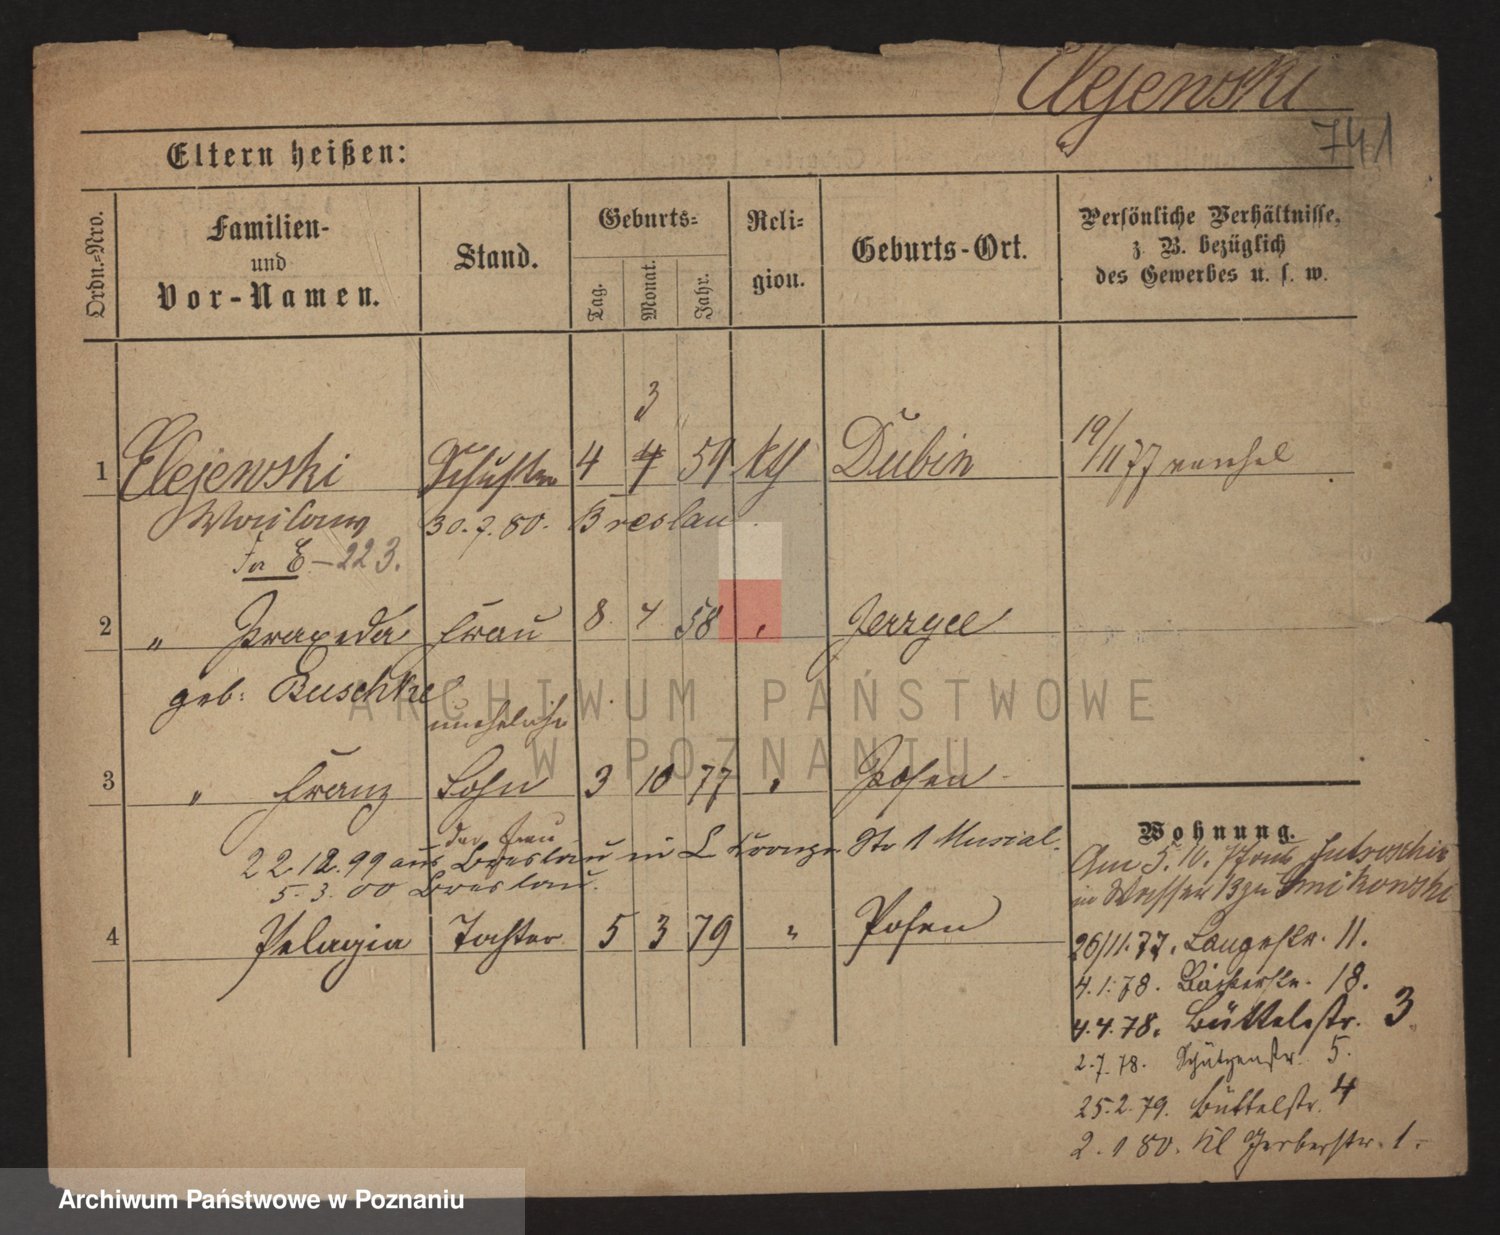 Elejewski
741
Eltern heißen:
Ordn.-Nro.
Familien- und Vor-Namen.
Stand.
Geburts-
Tag. Monat. Jahr.
Reli-gion.
Geburts-Ort.
Persönliche Verhältnisse,
z. B. bezüglich
des Gewerbes u. s. w.
3
1 Elejewski Schuster 4 4 59 kth Dubin 19/11 77
30. 7. 80. Breslau
E - 223.
2 " Praxeda Frau 8. 4 58 " Jerzyce
geb: Buschke
uneheliche
3 " Franz Sohn 3 10 77 " Posen
der Frau
22.12.99 aus Breslau in Str 1 Musial.
5.3.00 Breslau.
4 Pelagia Tochter 5 3 79 " Posen
Wohnung.
Am 5.10.
in Smikowski
26/11.77. Langestr. 11.
4.1.78. Bäckerstr. 18.
4.4.78. Büttelstr. 3
2.7.78. Schützenstr. 5.
25.2.79. Büttelstr. 4
2. 1 80. Kl Gerberstr. 1.
ARCHIWUM PAŃSTWOWE
W POZNANIU
Archiwum Państwowe w Poznaniu